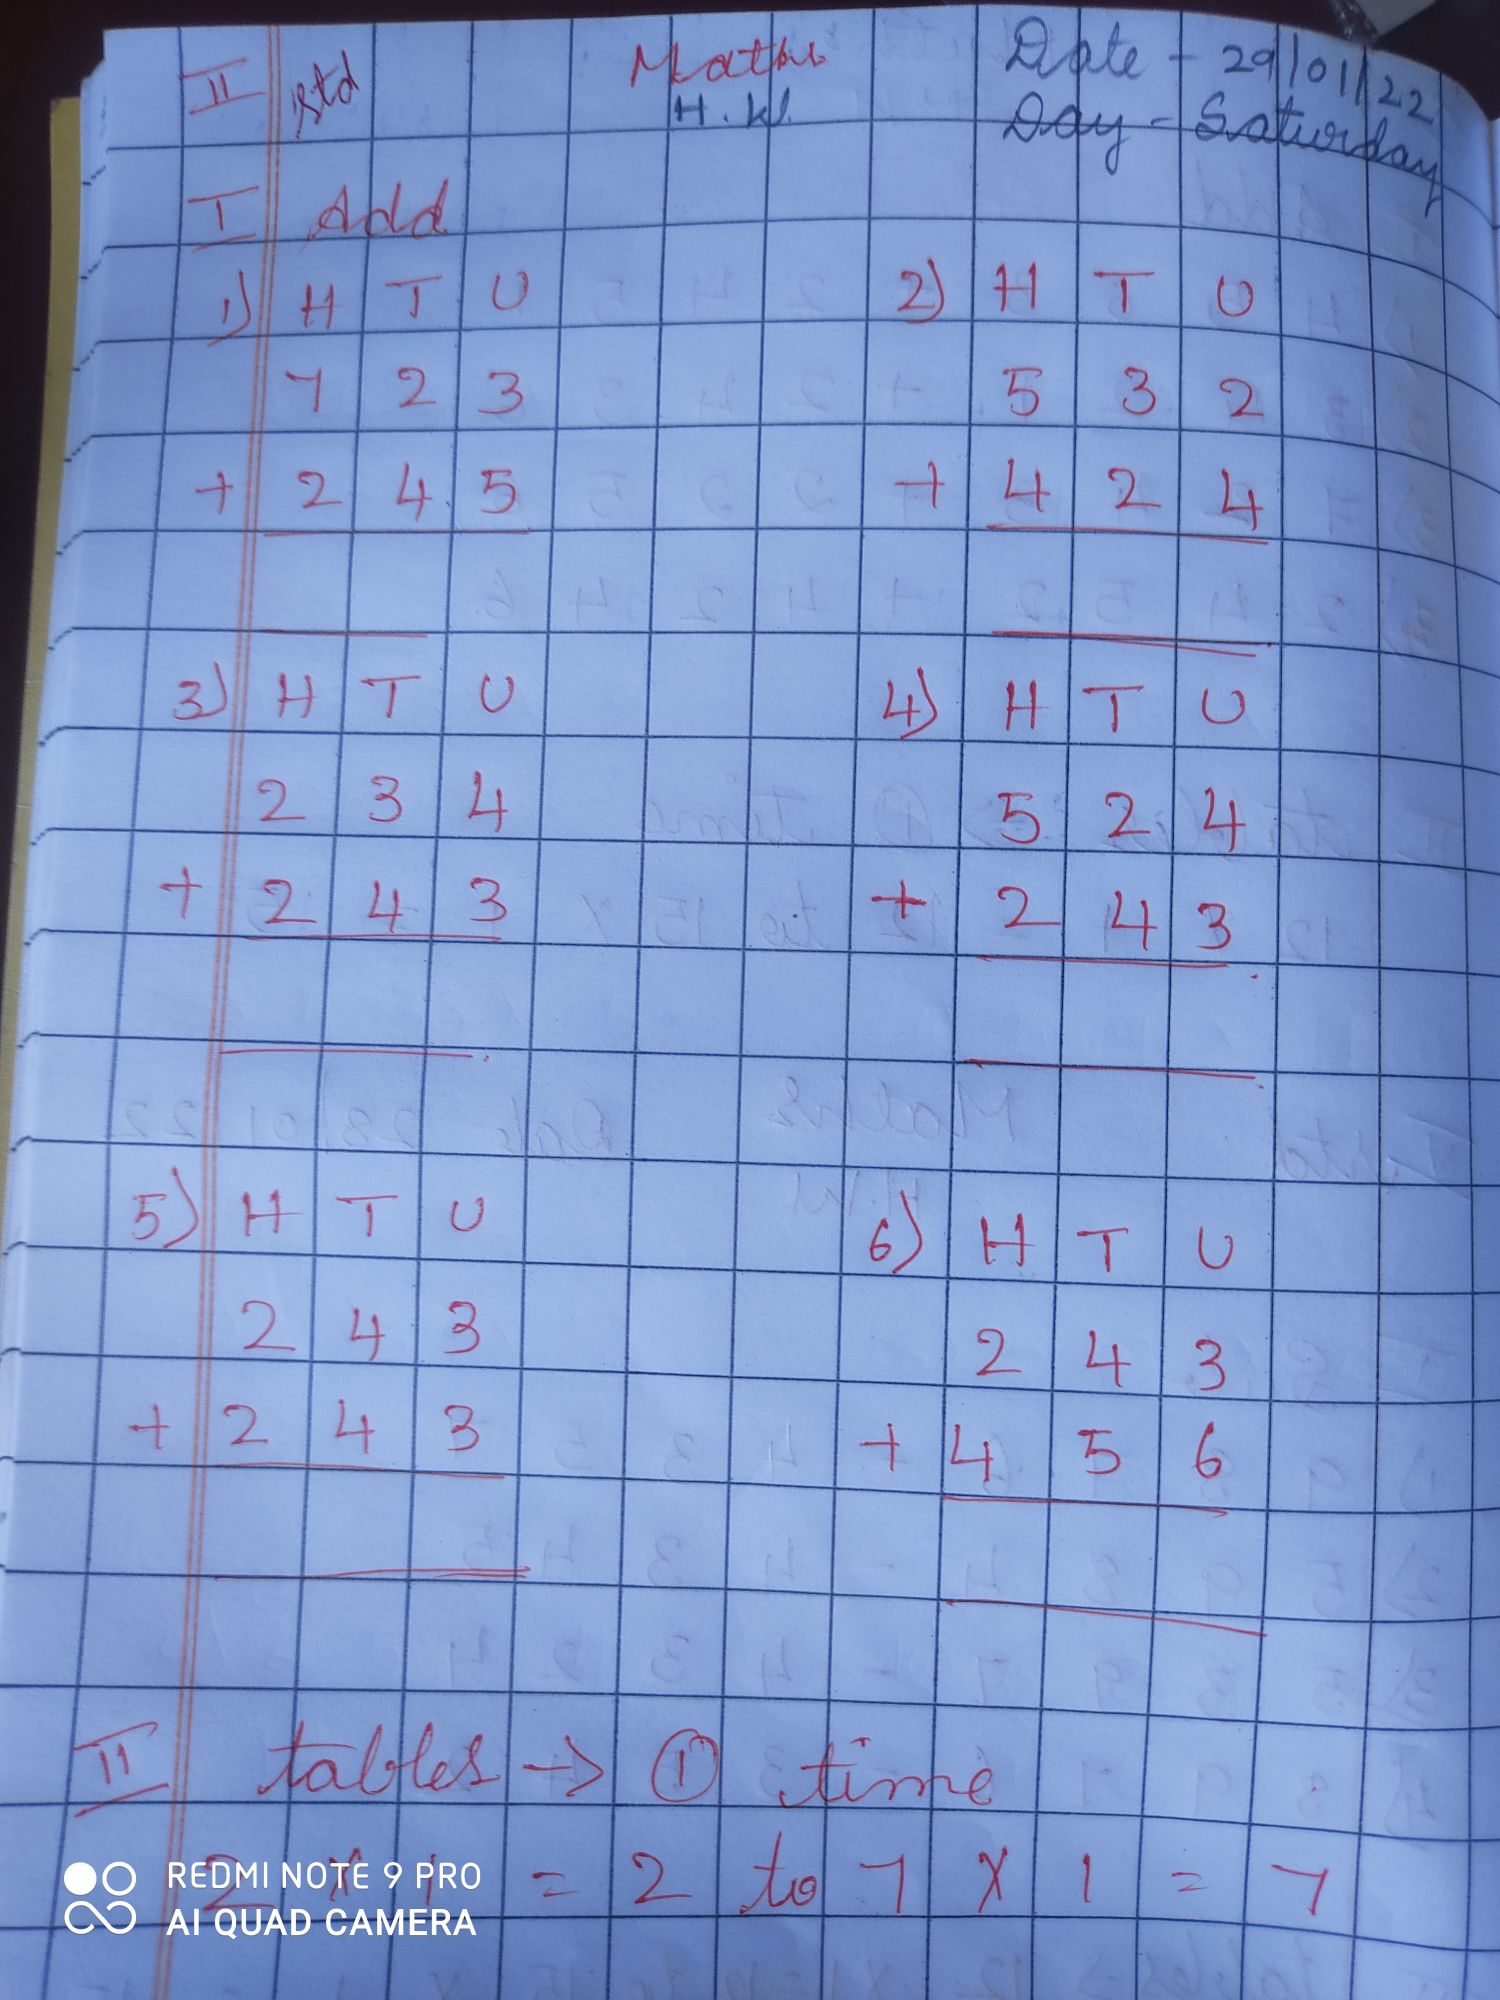 II std Maths Date - 29/01/22
H.W. Day - Saturday
I Add
1) H T U 2) H T U
7 2 3 5 3 2
+ 2 4 5 + 4 2 4
3) H T U 4) H T U
2 3 4 5 2 4
+ 2 4 3 + 2 4 3
5) H T U 6) H T U
2 4 3 2 4 3
+ 2 4 3 + 4 5 6
II tables → ① time
2 × 1 = 2 to 7 × 1 = 7
REDMI NOTE 9 PRO
AI QUAD CAMERA